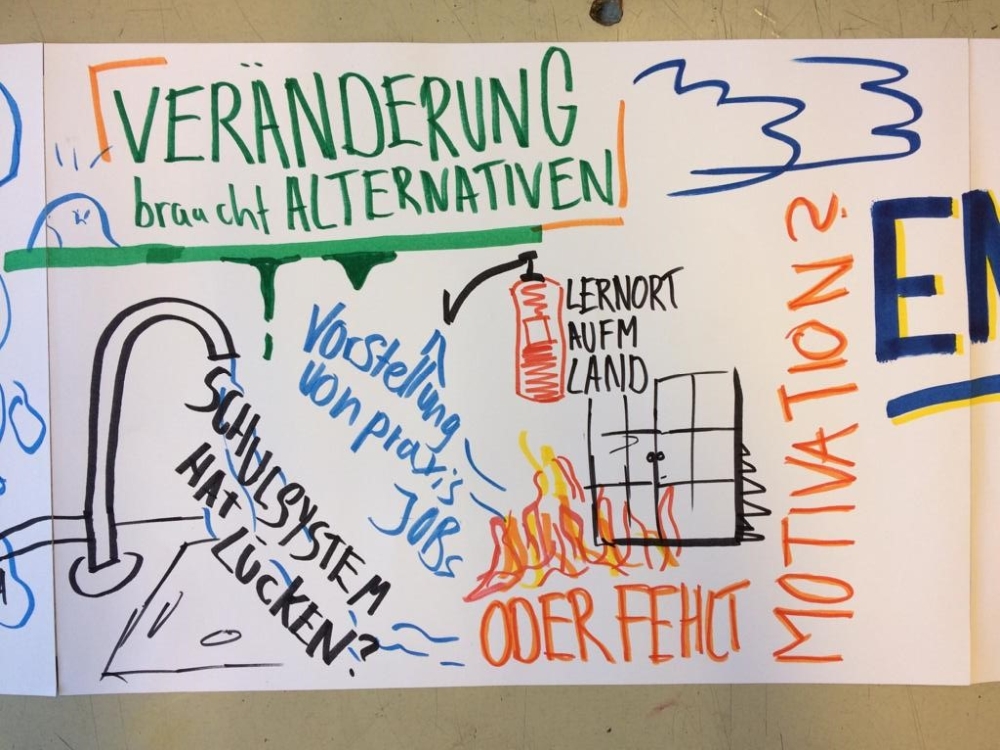 VERÄNDERUNG
braucht ALTERNATIVEN
LERNORT
AUFM
LAND
Vorstellung
von praxis
JOBs
SCHULSYSTEM
HAt LÜCKEN?
ODER FEHLT
MOTIVATION?